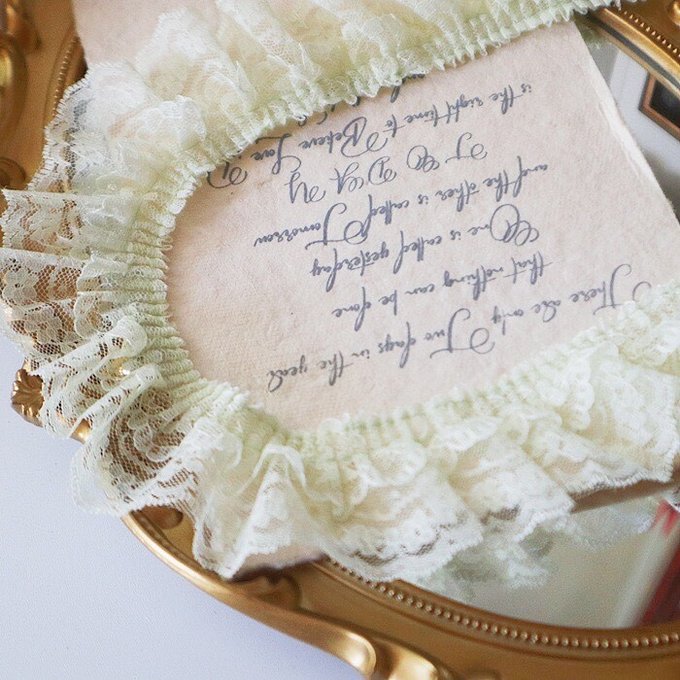 There are only Two days in the year
that nothing can be done
One is called yesterday
and the other is called Tomorrow
TODAY
is the right time to
Believe Love